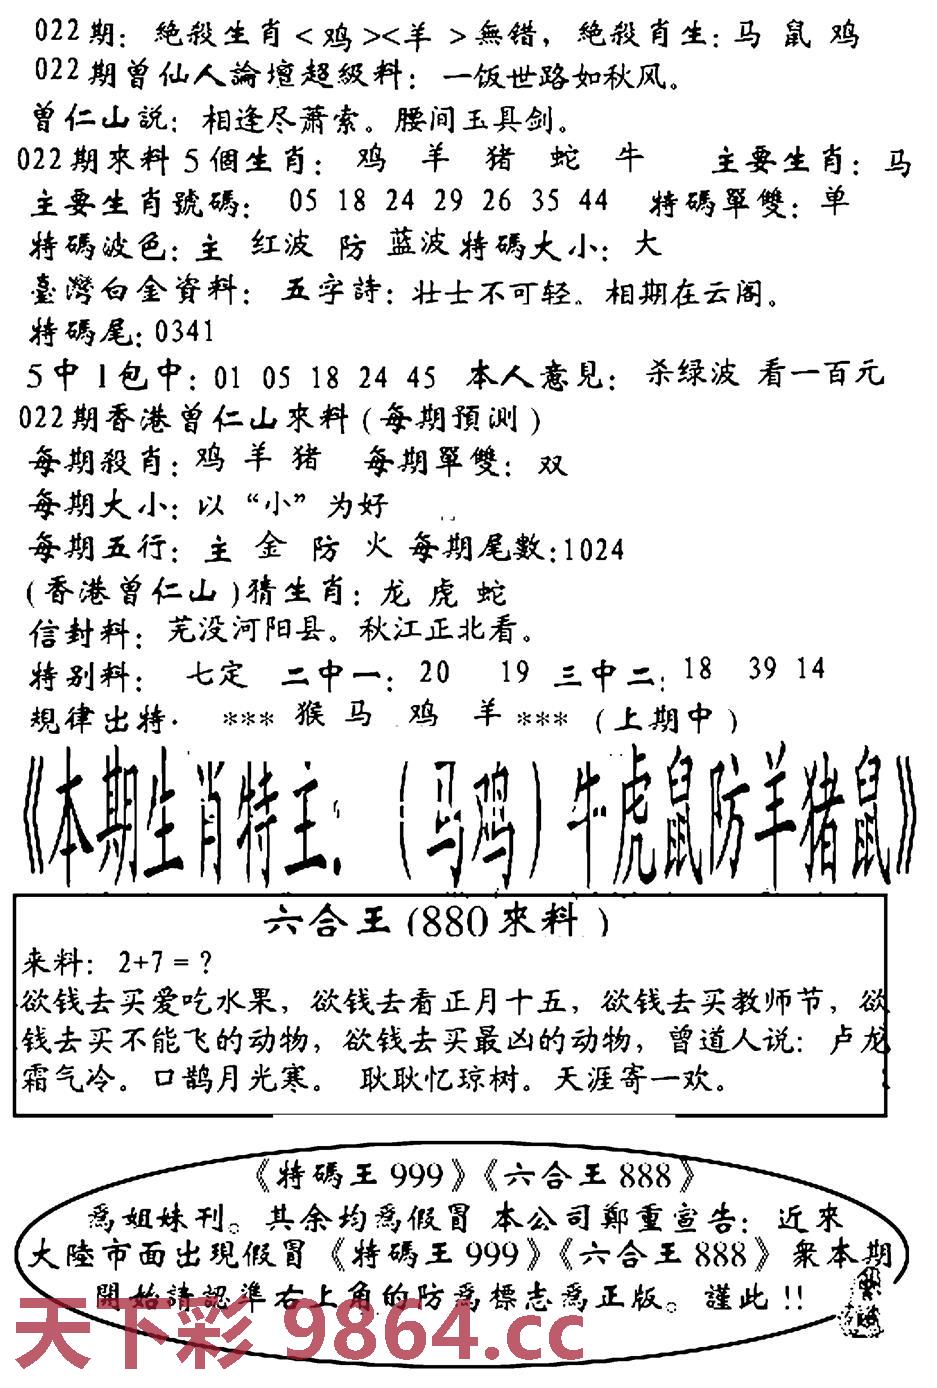 022期：絶殺生肖<鸡><羊 >無错，絶殺肖生：马 鼠 鸡
022期曾仙人論壇超級料：一饭世路如秋风。
曾仁山説：相逢尽萧索。腰间玉具剑。
022期來料5個生肖：鸡 羊 猪 蛇 牛 主要生肖：马
主要生肖號碼：05 18 24 29 26 35 44 特碼單雙：单
特碼波色：主 红波 防 蓝波 特碼大小：大
臺灣白金資料：五字詩：壮士不可轻。相期在云阁。
特碼尾：0341
5中1包中：01 05 18 24 45 本人意見：杀绿波 看一百元
022期香港曾仁山來料(每期預测)
每期殺肖：鸡 羊 猪 每期單雙：双
每期大小：以“小”为好
每期五行：主 金 防 火 每期尾數：1024
(香港曾仁山)猜生肖：龙 虎 蛇
信封料：芜没河阳县。秋江正北看。
特别料：七定 二中一：20 19 三中二：18 39 14
規律出特· *** 猴 马 鸡 羊 *** (上期中)
《本期生肖特主：（马鸡）牛虎鼠防羊猪鼠》
六合王(880來料)
来料：2+7=?
欲钱去买爱吃水果，欲钱去看正月十五，欲钱去买教师节，欲
钱去买不能飞的动物，欲钱去买最凶的动物，曾道人说：卢龙
霜气冷。口鹊月光寒。 耿耿忆琼树。天涯寄一欢。
《特碼王999》《六合王888》
爲姐妹刊。其余均爲假冒 本公司鄭重宣告：近來
大陸市面出現假冒《特碼王999》《六合王888》衆本期
開始請認準右上角的防爲標志爲正版。謹此!!
天下彩 9864.cc